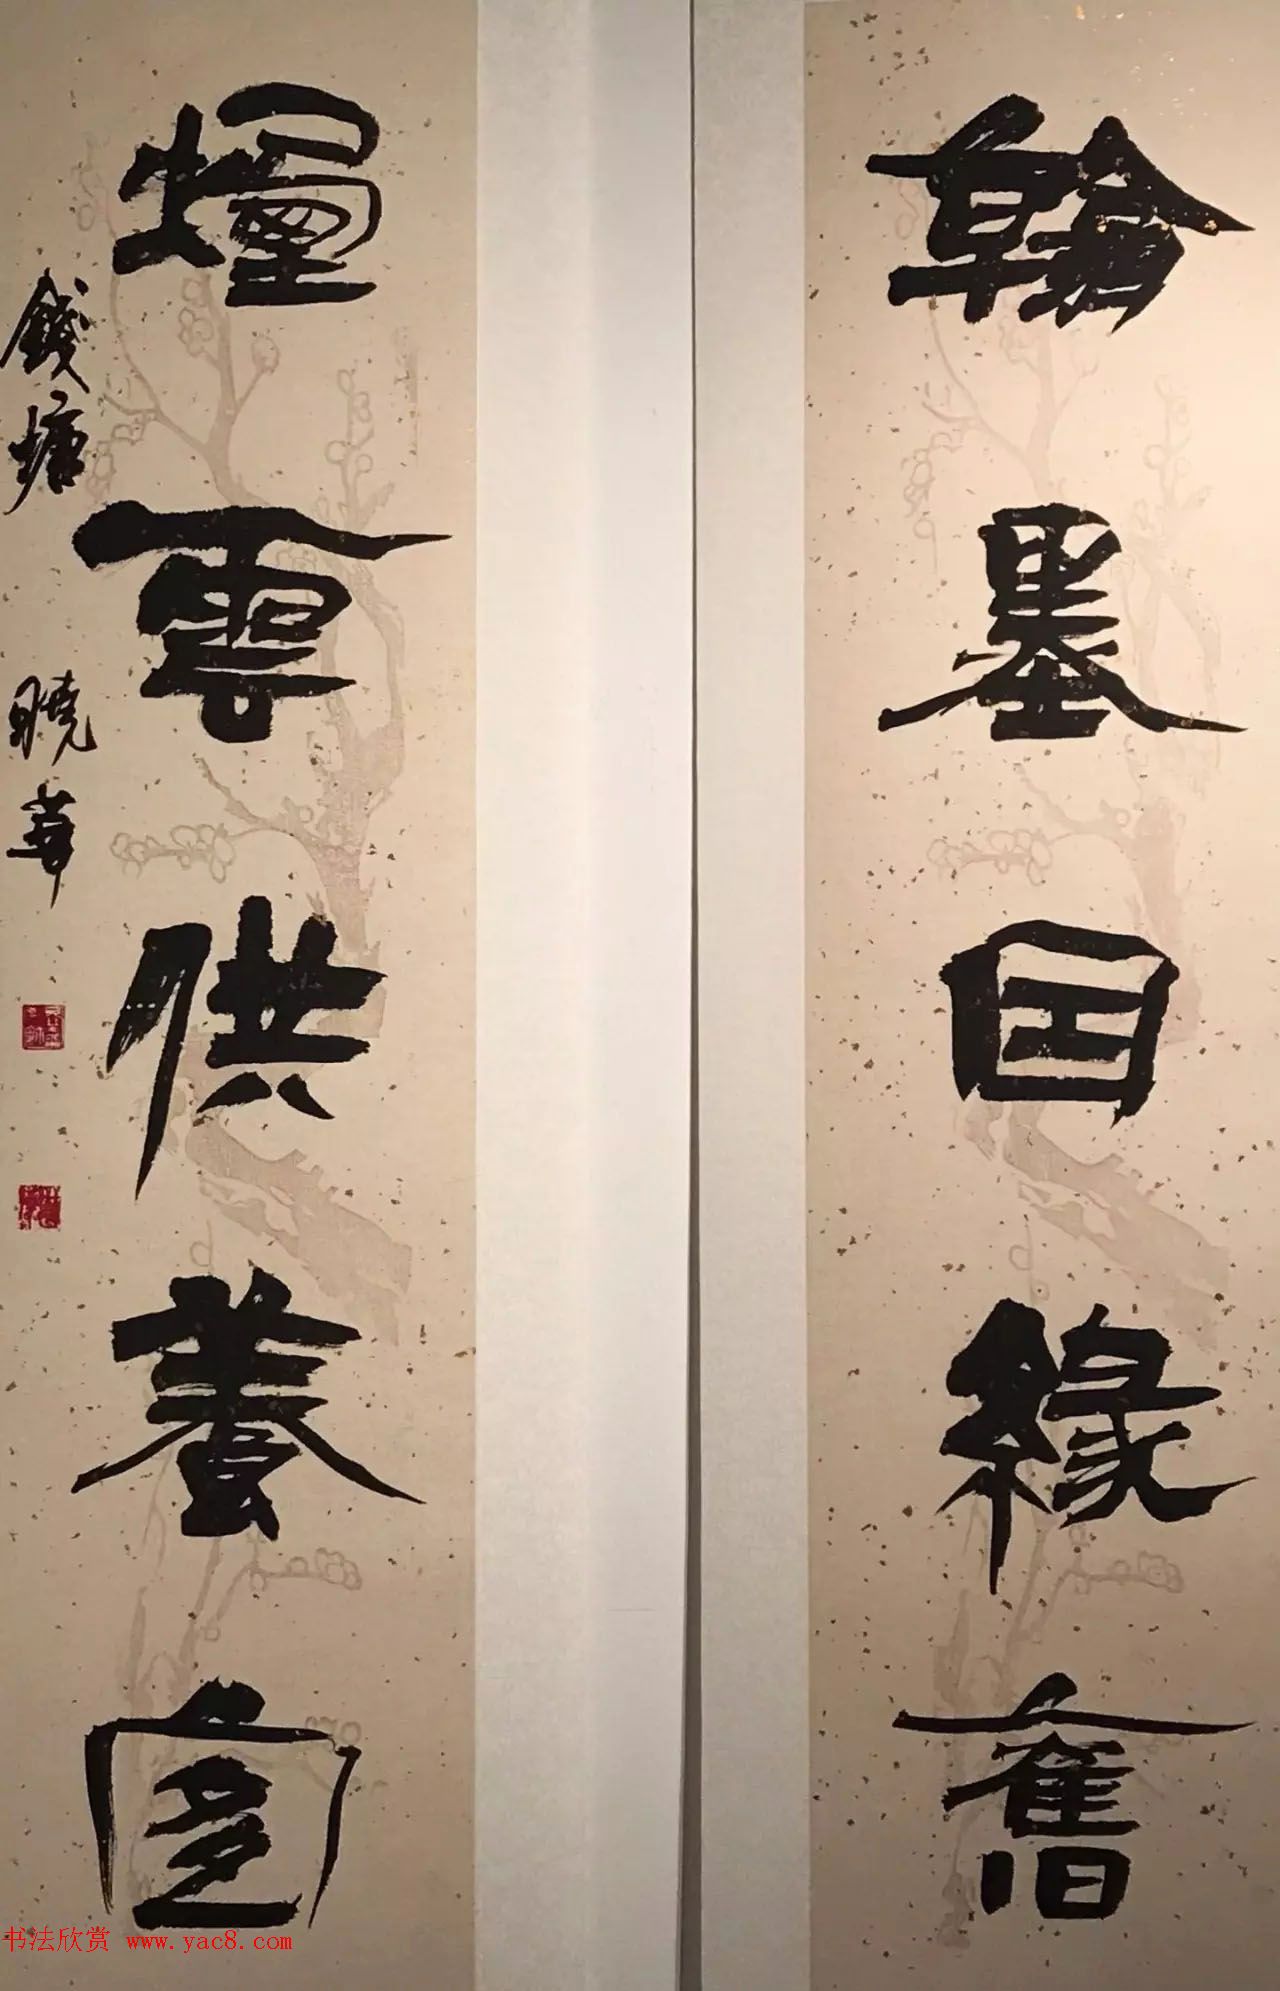 翰墨因緣舊
煙雲供養宜
錢塘 曉華
书法欣赏 www.yac8.com